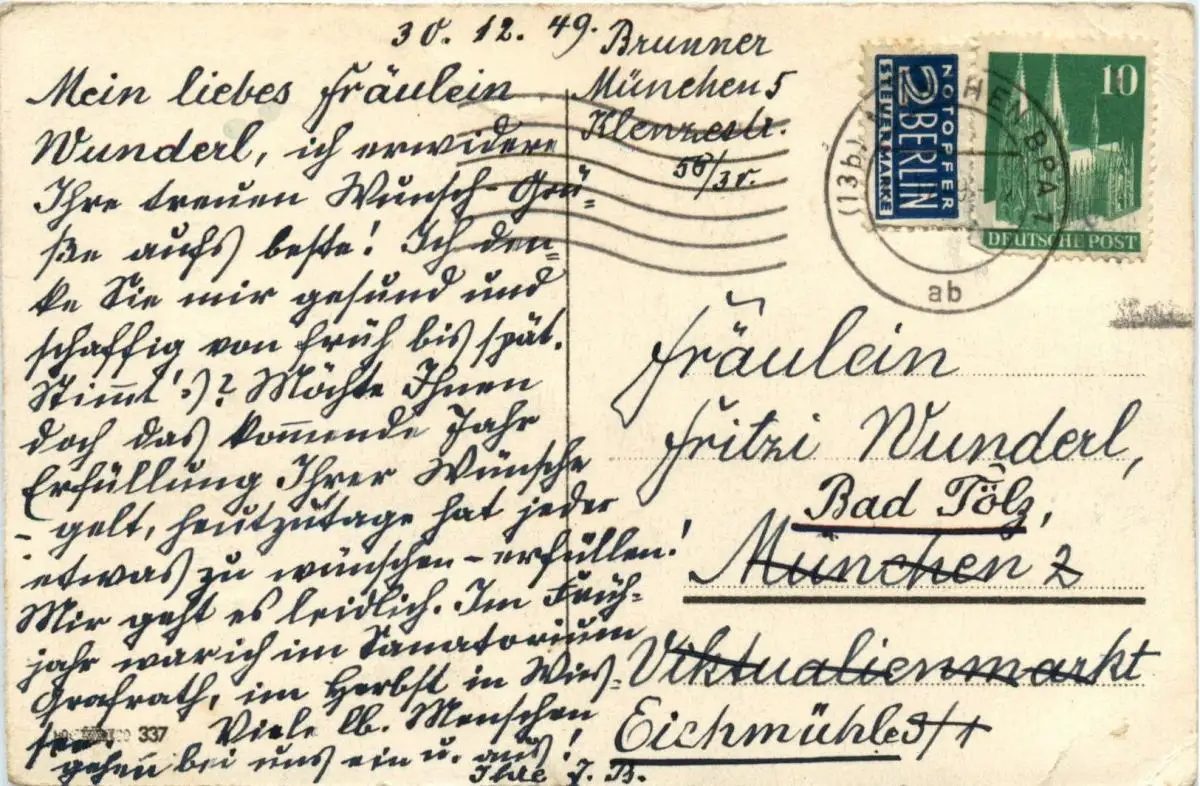 30. 12. 49.
Brunner
München 5
Klenzestr.
58/3r.
Mein liebes Fräulein
Wunderl, ich erwidere
Ihre treuen Wunsch-Grü-
ße aufs beste! Ich den-
ke Sie mir gesund und
schaffig von früh bis spät.
Stimmt's? Möchte Ihnen
doch das kommende Jahr
Erfüllung Ihrer Wünsche
- gelt, heutzutage hat jeder
etwas zu wünschen - erfüllen!
Mir geht es leidlich. Im Früh-
jahr war ich im Sanatorium
Grafrath, im Herbst in Wies-
see. Viele lb. Menschen
gehen bei uns ein u. aus!
Ihre J. B.
337
NOTOPFER
2 BERLIN
STEUERMARKE
10
DEUTSCHE POST
(13b) HEN BPA 1
ab
Fräulein
Fritzi Wunderl,
Bad Tölz,
München 2
Viktualienmarkt
Eichmühle 3/1